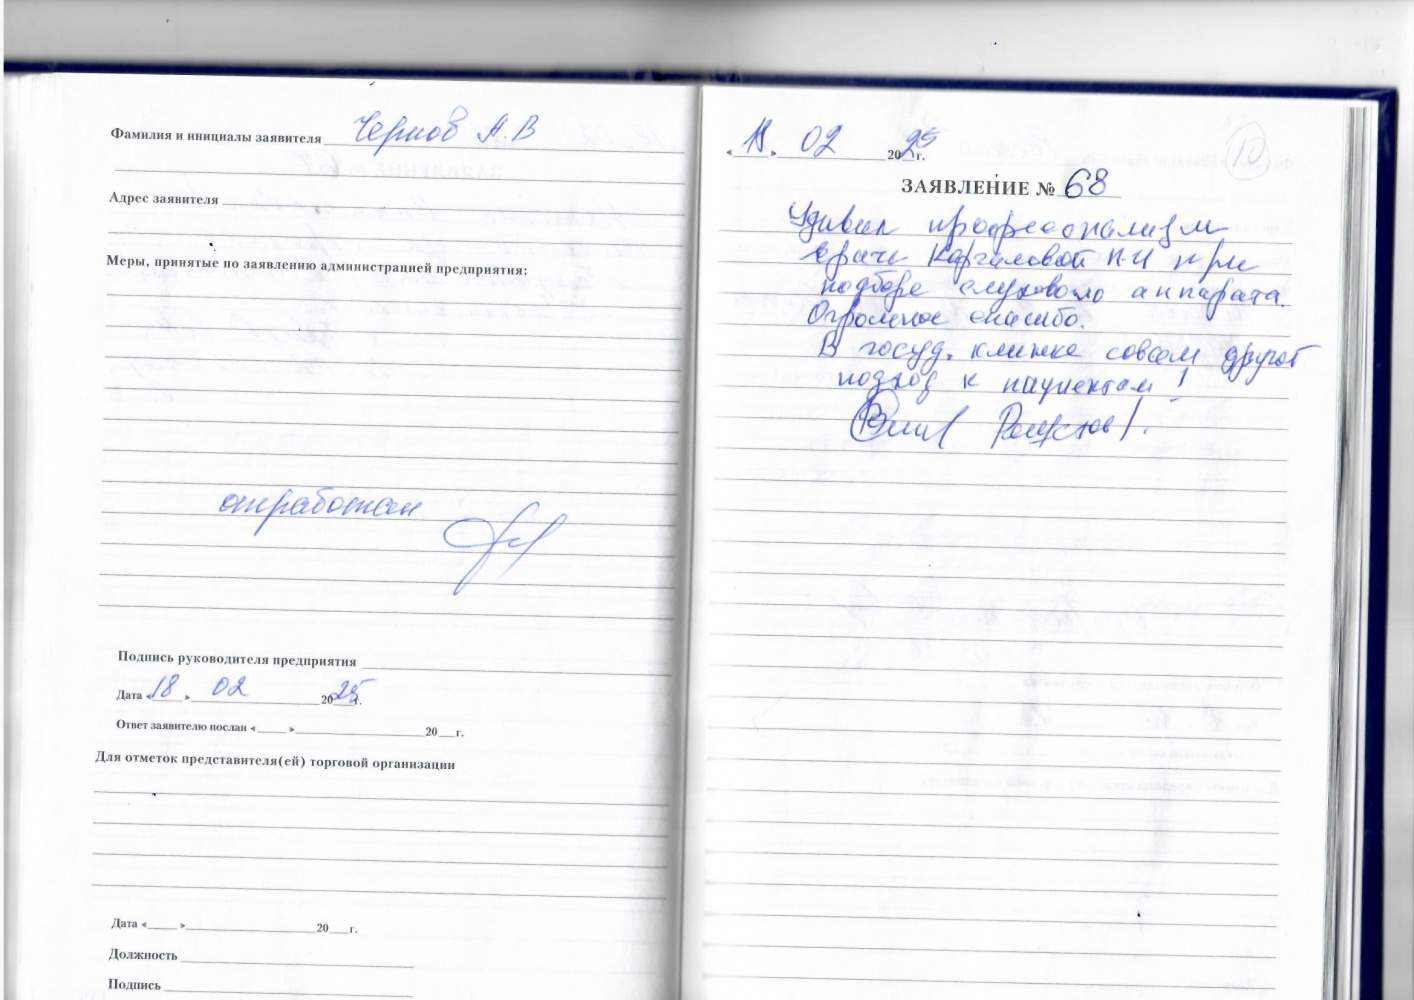 Фамилия и инициалы заявителя Чернов А.В
Адрес заявителя
Меры, принятые по заявлению администрацией предприятия:
отработан
Подпись руководителя предприятия
Дата «18» 02 2025 г.
Ответ заявителю послан « » 20 г.
Для отметок представителя(ей) торговой организации
Дата « » 20 г.
Должность
Подпись
«18» 02 2025 г.
10
ЗАЯВЛЕНИЕ № 68
Удивил профессионализм
врача Каргиловой Н.И при
подборе слухового аппарата.
Огромное спасибо.
В госуд. клинике совсем другой
подход к пациентам!